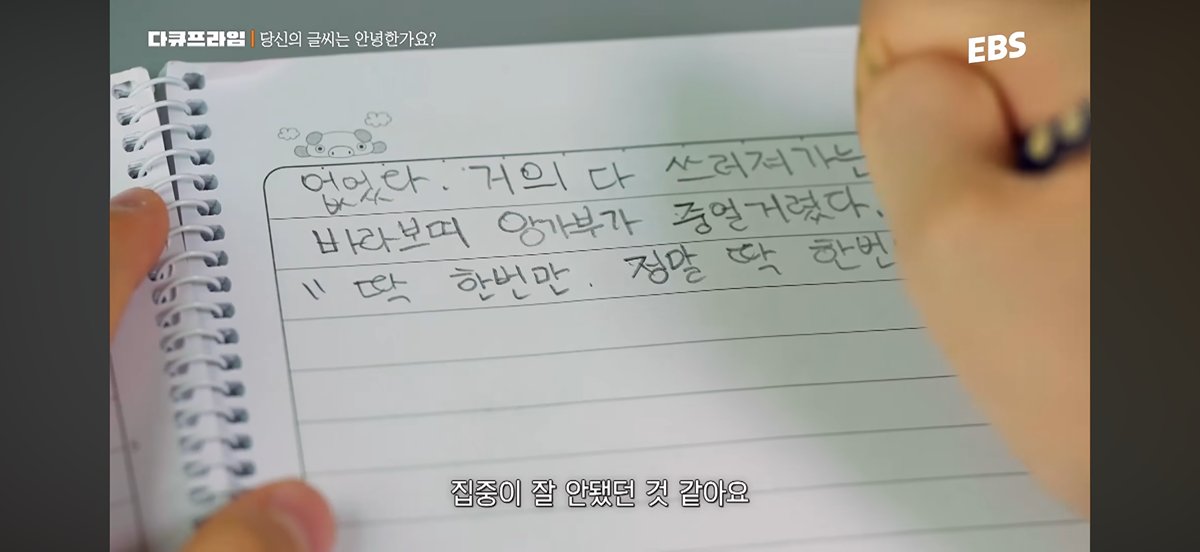 다큐프라임 | 당신의 글씨는 안녕한가요?
EBS
없었다. 거의 다 쓰러져가는
바라보며 앙가부가 중얼거렸다.
" 딱 한번만. 정말 딱 한번
집중이 잘 안됐던 것 같아요